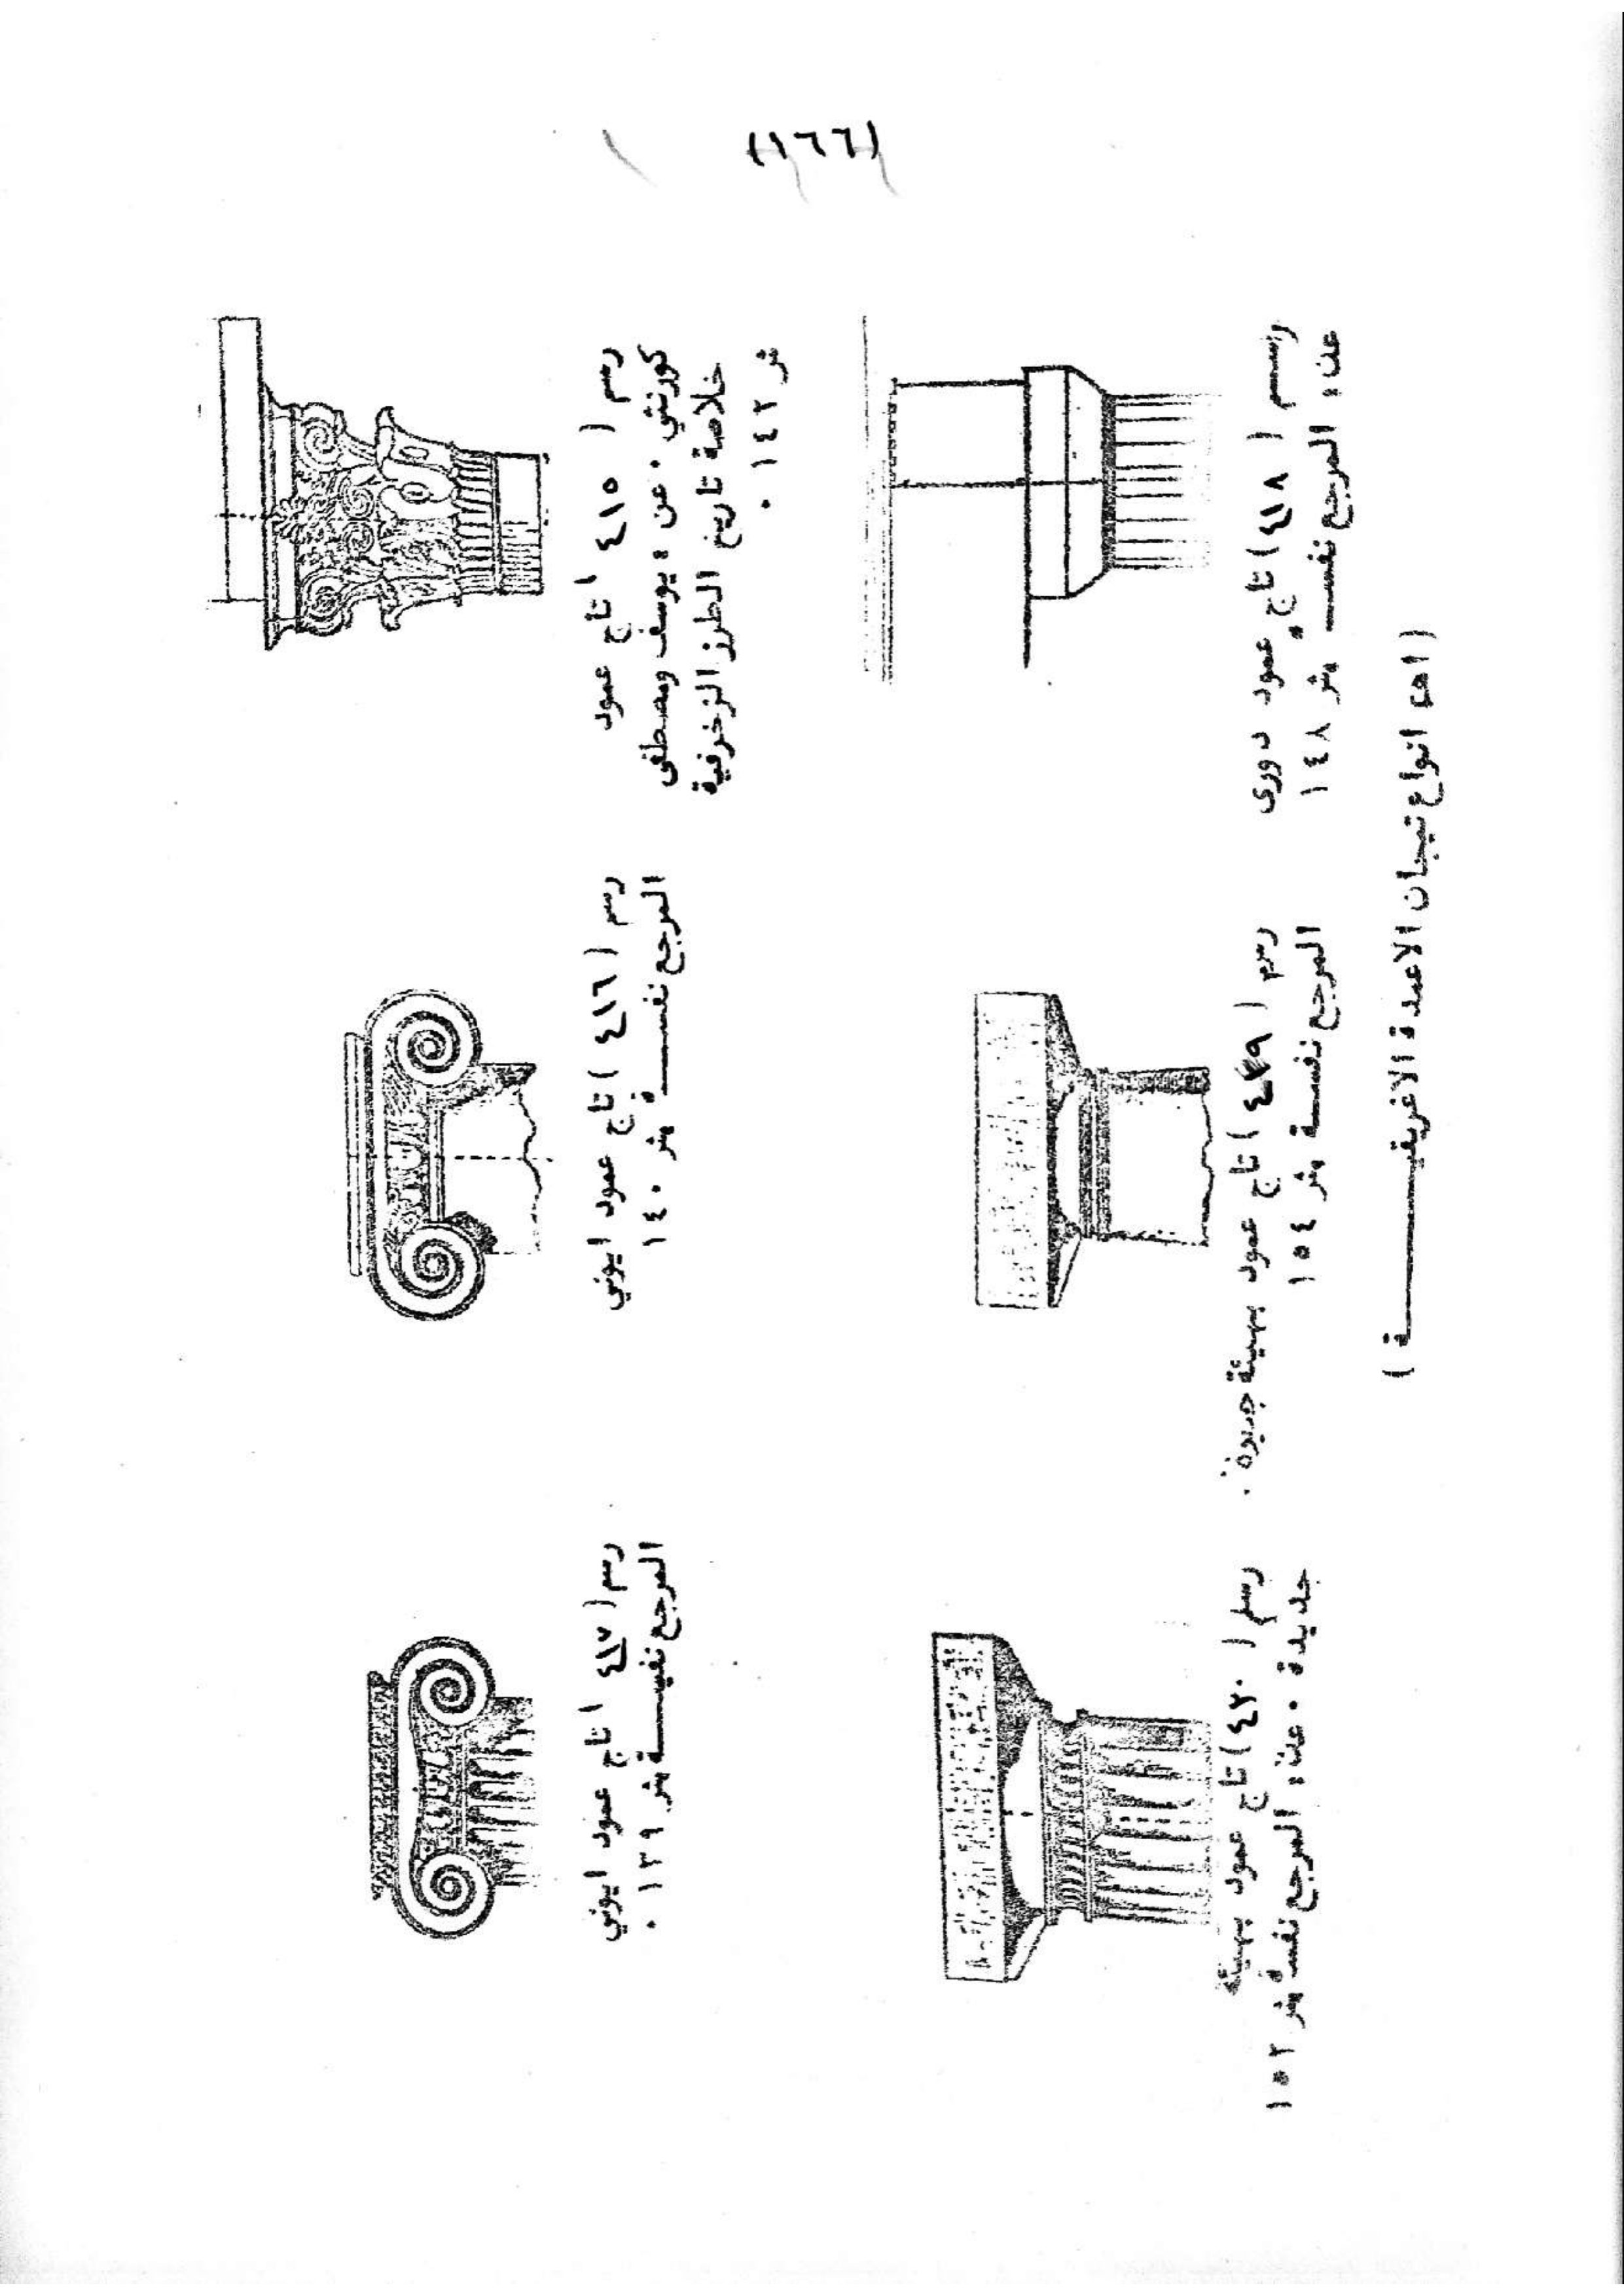 (١٦٦)
رسم ( ٤١٥ ) تاج عمود
كورنثي . عن : يوسف ومصطفى
خلاصة تاريخ الطرز الزخرفية
ش ١٤٢ .
رسم ( ٤١٦ ) تاج عمود ايوني
المرجع نفسـه ش ١٤٠
رسم ( ٤١٧ ) تاج عمود ايوني
المرجع نفسـه ش ١٣٩ .
رسم ( ٤١٨ ) تاج عمود دورى
عن : المرجع نفسـه ش ١٤٨
رسم ( ٤١٩ ) تاج عمود بهيئة جديدة .
المرجع نفسة ش ١٥٤
رسم ( ٤٢٠ ) تاج عمود بهيئة
جديدة . عن : المرجع نفسة ش ١٥٢
( اهم انواع تيجان الاعمدة الاغريقيـة )